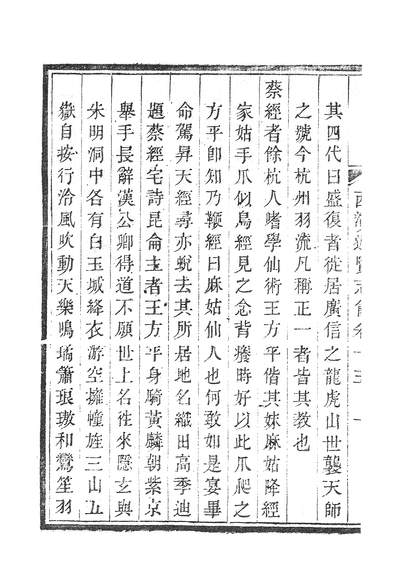 其四代曰盛復者從居廣信之龍虎山世襲天師
之號今杭州羽流凡稱正一者皆其教也
蔡經者餘杭人嗜學仙術王方平偕其妹麻姑降經
家姑手爪似鳥經見之念背癢時好以此爪爬之
方平卽知乃鞭經曰麻姑仙人也何敢如是宴畢
命駕昇天經尋亦蛻去其所居地名織田高季迪
題蔡經宅詩昆侖主者王方平身騎黃麟朝紫京
舉手長辭漢公卿得道不願世上名往來隱玄與
朱明洞中各有白玉城絳衣游空擁幢旌三山五
嶽自按行泠風吹動天樂鳴璚簫琅璈和鸞笙羽